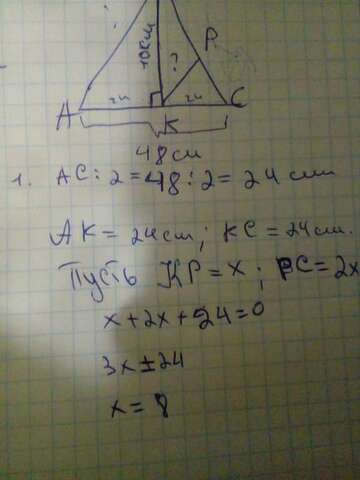 10см
?
P
24
24
A
K
C
48 см
1. AC : 2 = 48 : 2 = 24 см
AK = 24 cm; KC = 24 cm.
Пусть KP = x ; PC = 2x
x + 2x + 24 = 0
3x ± 24
x = 8